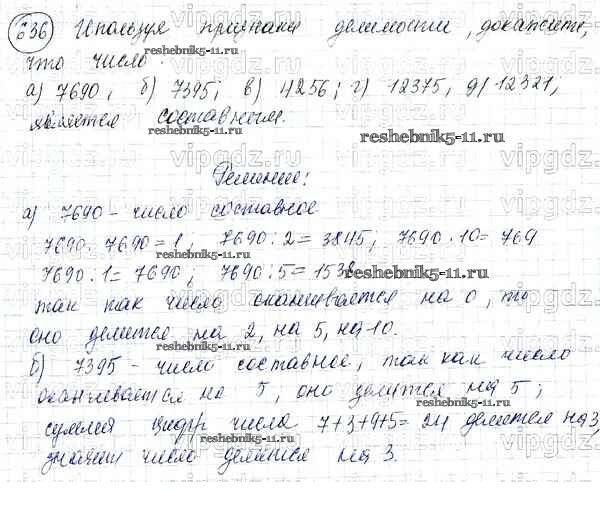 636 Используя признаки делимости, докажите,
что число:
а) 7690; б) 7395; в) 4256; г) 12375, д) 12321;
является составным.
reshebnik5-11.ru
Решение:
а) 7690 - число составное
7690 : 7690 = 1; 7690 : 2 = 3845; 7690 : 10 = 769
7690 : 1 = 7690; 7690 : 5 = 1538
так как число оканчивается на 0, то
оно делится на 2, на 5, на 10.
б) 7395 - число составное, так как число
оканчивается на 5, оно делится на 5;
сумма цифр числа 7+3+9+5= 24 делится на 3,
значит число делится на 3.
reshebnik5-11.ru
vipgdz.ru